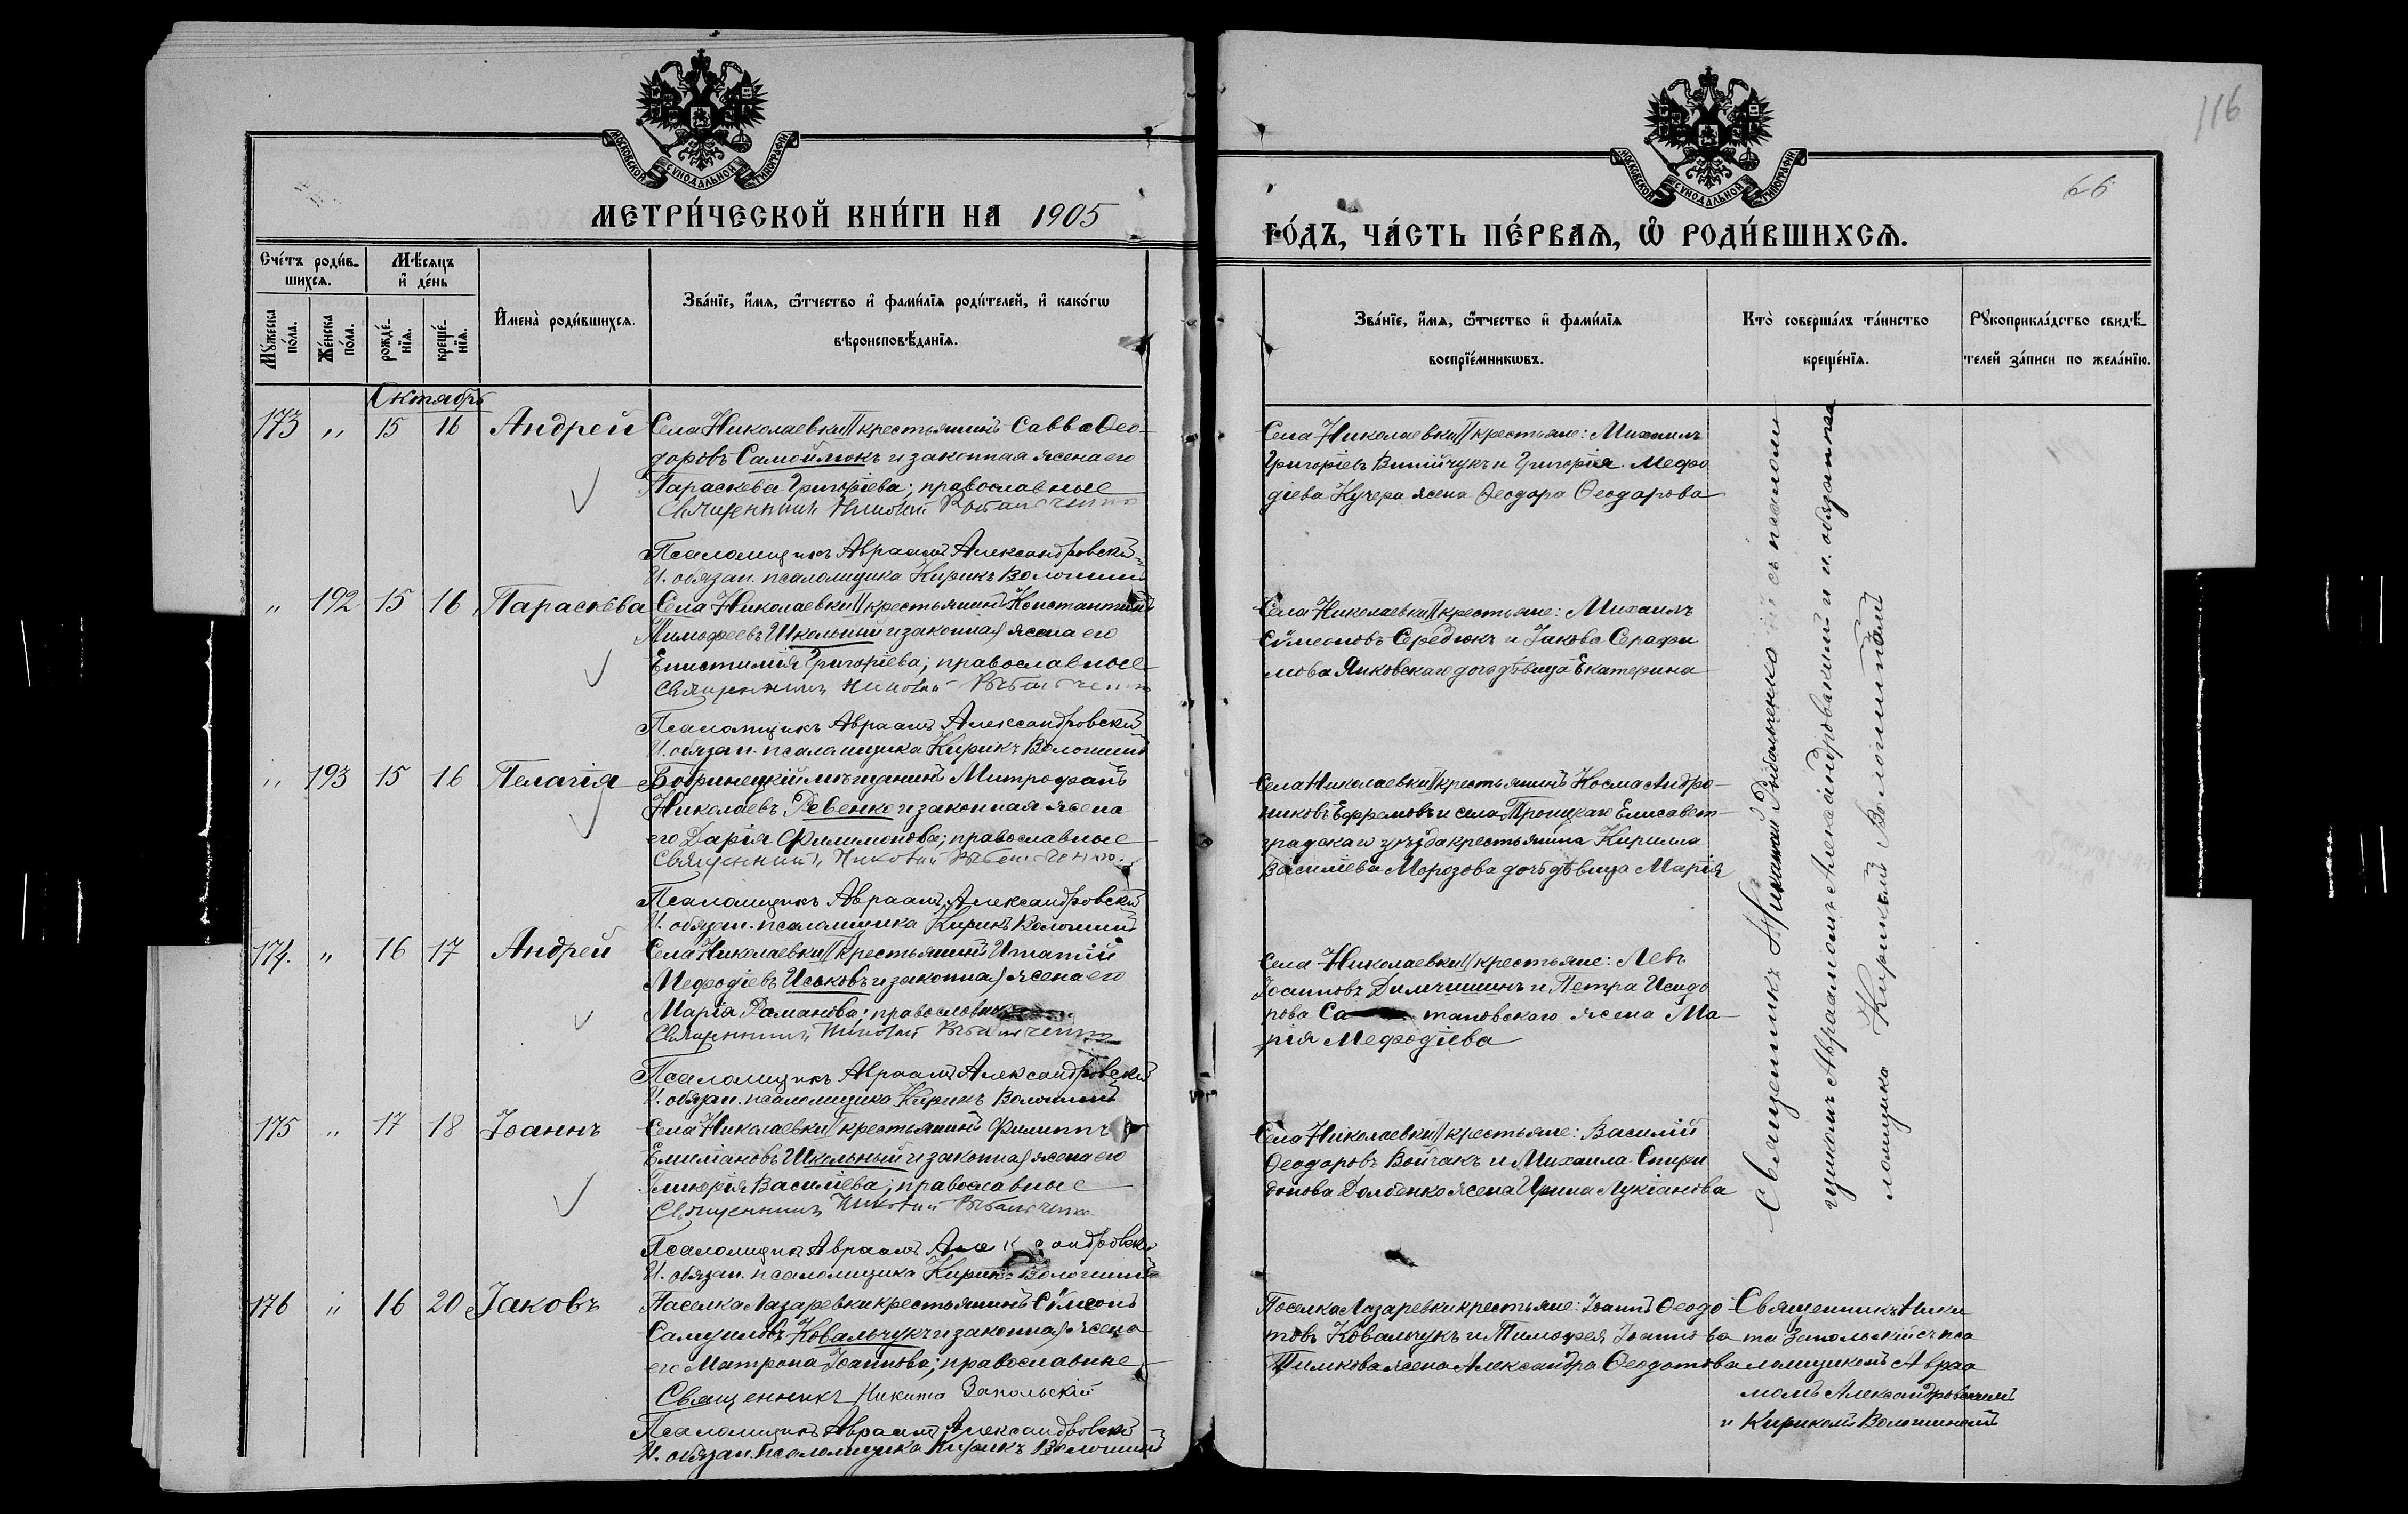 116
66
МОСКОВСКОЙ СѴНОДАЛЬНОЙ ТИПОГРАФІИ
МОСКОВСКОЙ СѴНОДАЛЬНОЙ ТИПОГРАФІИ
МЕТРИ́ЧЕСКОЙ КНИ́ГИ НА 1905
ГО́ДЪ, ЧА́СТЬ ПЕ́РВАѦ, Ѡ҆ РОДИ́ВШИХСѦ.
Сче́тъ роди́в-
шихсѧ.
Мꙋ́жеска по́ла.
Же́нска по́ла.
Мѣ́сѧцъ
и҆ де́нь
рожде́-
нїѧ.
креще́-
нїѧ.
И҆мена̀ роди́вшихсѧ.
Зва́нїе, и҆́мѧ, ѻ҆́тчество и҆ фами́лїѧ роди́телей, и҆ како́гѡ
вѣроисповѣ́данїѧ.
Зва́нїе, и҆́мѧ, ѻ҆́тчество и҆ фами́лїѧ
воспрїе́мникѡвъ.
Кто̀ соверша́лъ та́инство
креще́нїѧ.
Рꙋкоприкла́дство свидѣ́-
телей за́писи по жела́нїю.
Октябрь
173 " 15 16 Андрей
Села Николаевки II крестьянинъ Савва Ѳео-
доровъ Самойлюкъ и законная жена его
Параскева Григоріева; православные
Священникъ Никатій Рыбальченко
Псаломщикъ Авраамъ Александровскій
И. обязан. псаломщика Кирикъ Волошинъ
Села Николаевки II крестьяне: Михаилъ
Григоріевъ Винійчукъ и Григорія Мефо
діева Кучера жена Ѳеодора Ѳеодорова
" 192 15 16 Параскева
Села Николаевки II крестьянинъ Константинъ
Тимофеевъ Школьный и законная жена его
Епистимія Григоріева; православные
Священникъ Рыбальченко
Псаломщикъ Авраамъ Александровскій
И. обязан. псаломщика Кирикъ Волошинъ
Села Николаевки II крестьяне: Михаилъ
Сѵмеоновъ Середюкъ и Іакова Серафи
мова Янковскаго дочь дѣвица Екатерина
" 193 15 16 Пелагія
Бобринецкій мѣщанинъ Митрофанъ
Николаевъ Ревенко и законная жена
его Дарія Филимонова; православные
Священникъ Рыбальченко
Псаломщикъ Авраамъ Александровскій
И. обязан. псаломщика Кирикъ Волошинъ
Села Николаевки II крестьянинъ Косма Андро-
никовъ Ефремовъ и села Троицкаго Елисавет-
градскаго уѣзда крестьянина Кирилла
Василіева Морозова дочь дѣвица Марія
174. " 16 17 Андрей
Села Николаевки II крестьянинъ Игнатій
Мефодіевъ Иськовъ и законная жена его
Марія Романова; православные
Священникъ Рыбальченко
Псаломщикъ Авраамъ Александровскій
И. обязан. псаломщика Кирикъ Волошинъ
Села Николаевки II крестьяне: Левъ
Іоанновъ Димчишинъ и Петра Исидо
рова жена Ма-
рія Мефодіева
175 " 17 18 Іоаннъ
Села Николаевки II крестьянинъ Филиппъ
Емиліановъ Школьный и законная жена его
Гликерія Василіева; православные
Священникъ Рыбальченко
Псаломщикъ Авраамъ Александровскій
И. обязан. псаломщика Кирикъ Волошинъ
Села Николаевки II крестьяне: Василій
Ѳеодоровъ Войчакъ и Михаила Спири
донова Долбенко жена Ирина Лукіанова
176 " 16 20 Іаковъ
Поселка Лазаревки крестьянинъ Сѵмеонъ
Самуиловъ Ковальчукъ и законная жена
его Матрона Іоаннова; православные
Священникъ Никита Запольскій
Псаломщикъ Авраамъ Александровскій
И. обязан. псаломщика Кирикъ Волошинъ
Поселка Лазаревки крестьяне: Іоаннъ Ѳеодо
товъ Ковальчукъ и Тимофея Іоаннова
Тимкова жена Александра Ѳеодотова
Священникъ Рыбальченко съ псалом
щикомъ Авраамомъ Александровскимъ и и. обязан
ломщика Кирикомъ Волошинымъ
Священникъ Ники
та Запольскій съ пса
ломщикомъ Авраа
момъ Александровскимъ
и Кирикомъ Волошинымъ